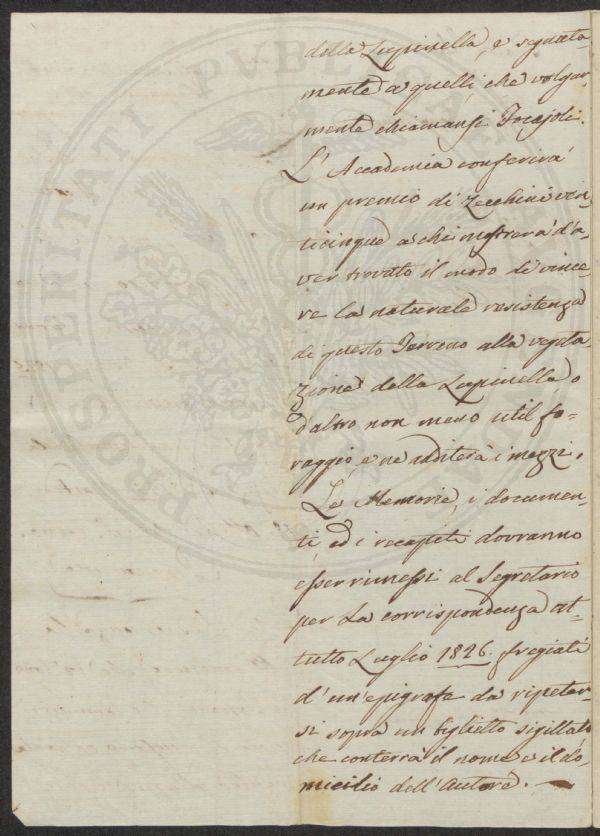 della Lupinella, e segnata-
mente a quelli, che volgar-
mente chiamansi Tocajoli.
L'Accademia conferirà
un premio di Zecchini ven-
ticinque a chi mostrerà d'a-
ver trovato il modo di vince-
re la naturale resistenza
di questo Terreno alla vegeta-
zione della Lupinella o
d'altro non meno util fo-
raggio, e ne additerà i mezzi.
Le Memorie, i documen-
ti, ed i recapiti dovranno
esser rimessi al Segretario
per la corrispondenza a
tutto Luglio 1826. fregiati
d'un'epigrafe da ripeter-
si sopra un biglietto sigillato
che conterrà il nome e il do-
micilio dell'Autore.
PROSPERITATI PUBLICAE